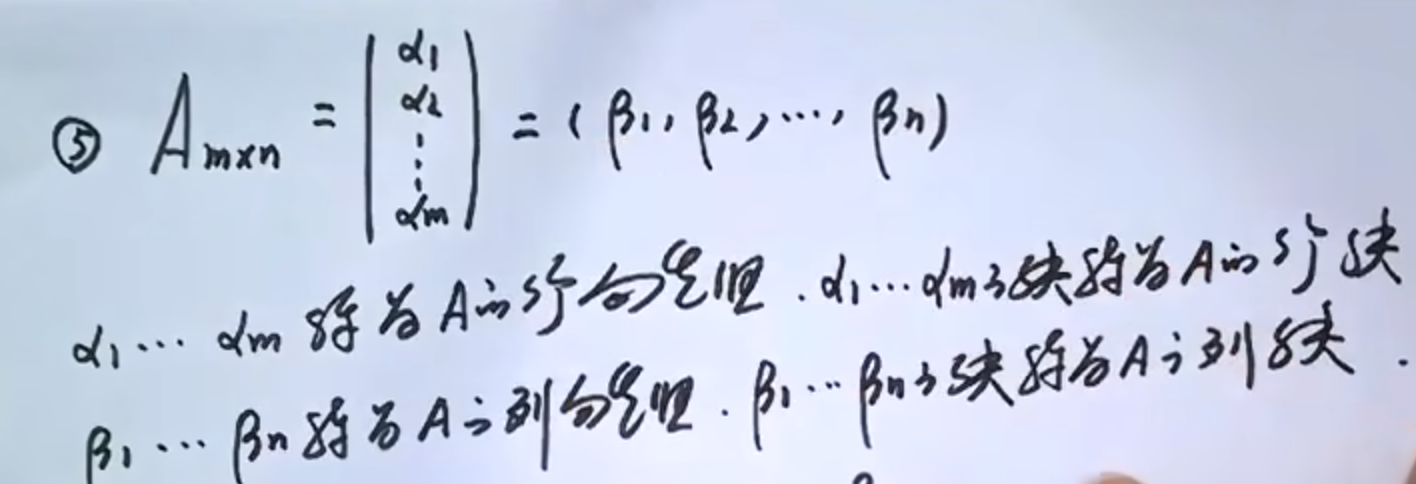 ⑤ A_{m×n} = \begin{pmatrix} α_1 \\ α_2 \\ ⋮ \\ α_m \end{pmatrix} = (β_1, β_2, ⋯, β_n)
α_1⋯α_m 称为A的行向量组.α_1⋯α_m之秩称为A的行秩
β_1⋯β_n称为A之列向量组.β_1⋯β_n之秩称为A之列秩.